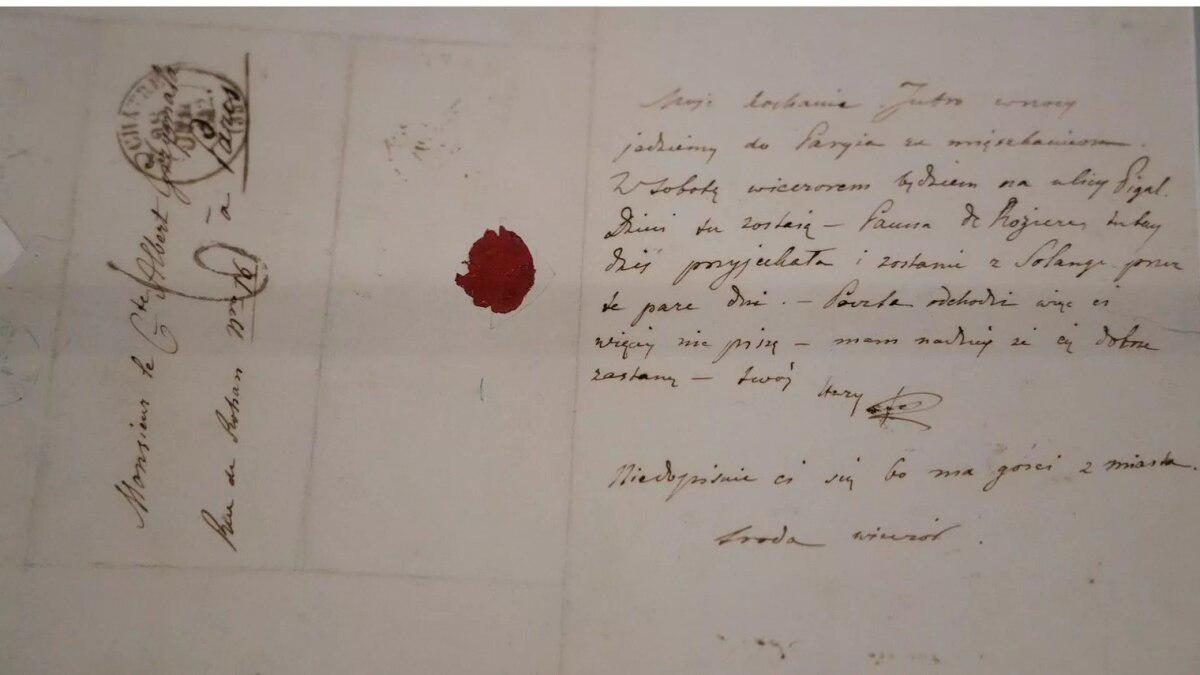 Monsieur le Cte Albert Grzymała
Rue de Rohan Nro 16 à Paris
CHATRE
28
Moje kochanie. Jutro w nocy
jedziemy do Paryża za mięszkaniem.
W Sobotę wieczorem będziem na ulicy Pigal.
Dzieci tu zostają — Panna de Rozieres tutaj
dziś przyjechała i zostanie z Solange przez
te pare dni. — Poczta odchodzi więc ci
więcéj nie piszę — mam nadzieję że cię dobrze
zastanę — twój
stary
Niedopisuie ci się bo ma gości z miasta.
Sroda wieczór.